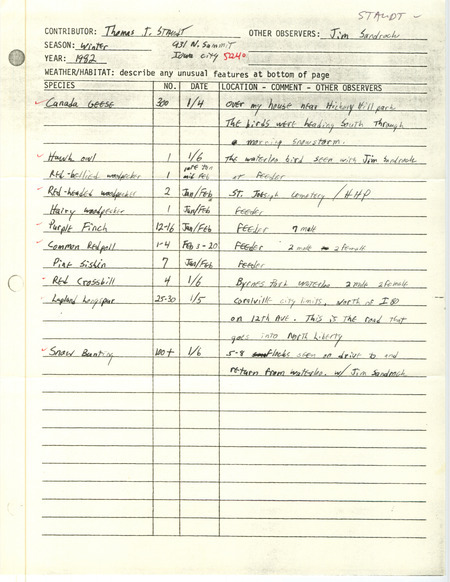 STAUDT -
CONTRIBUTOR: Thomas J. STAUDT OTHER OBSERVERS: Jim Sandrock
SEASON: Winter 931 N. Summit
YEAR: 1982 Iowa City 52240
WEATHER/HABITAT: describe any unusual features at bottom of page
SPECIES NO. DATE LOCATION - COMMENT - OTHER OBSERVERS
Canada GEESE 300 1/4 over my house near Hickory Hill park
The birds were heading South Through
a morning snowstorm.
Hawk owl 1 1/6 The waterloo bird seen with Jim Sandrock
Red-bellied woodpecker 1 mid Feb at Feeder
Red-headed woodpecker 2 Jan/Feb ST. Joseph Cemetery / HHP
Hairy woodpecker 1 Jan/Feb FEEDER
Purple Finch 12-16 Jan/Feb FEEDER 7 male
Common Redpoll 1-4 Feb 3-20 FEEDER 2 male 2 female
Pine Siskin 7 Jan/Feb Feeder
Red Crossbill 4 1/6 Byrnes Park Waterloo 2 male 2 female
Lapland Longspur 25-30 1/5 Coralville city limits, North of I 80
on 12th Ave. This is the road that
goes into North Liberty
Snow Bunting 100+ 1/6 5-8 flocks seen on drive to and
return from waterloo. w/ Jim Sandrock